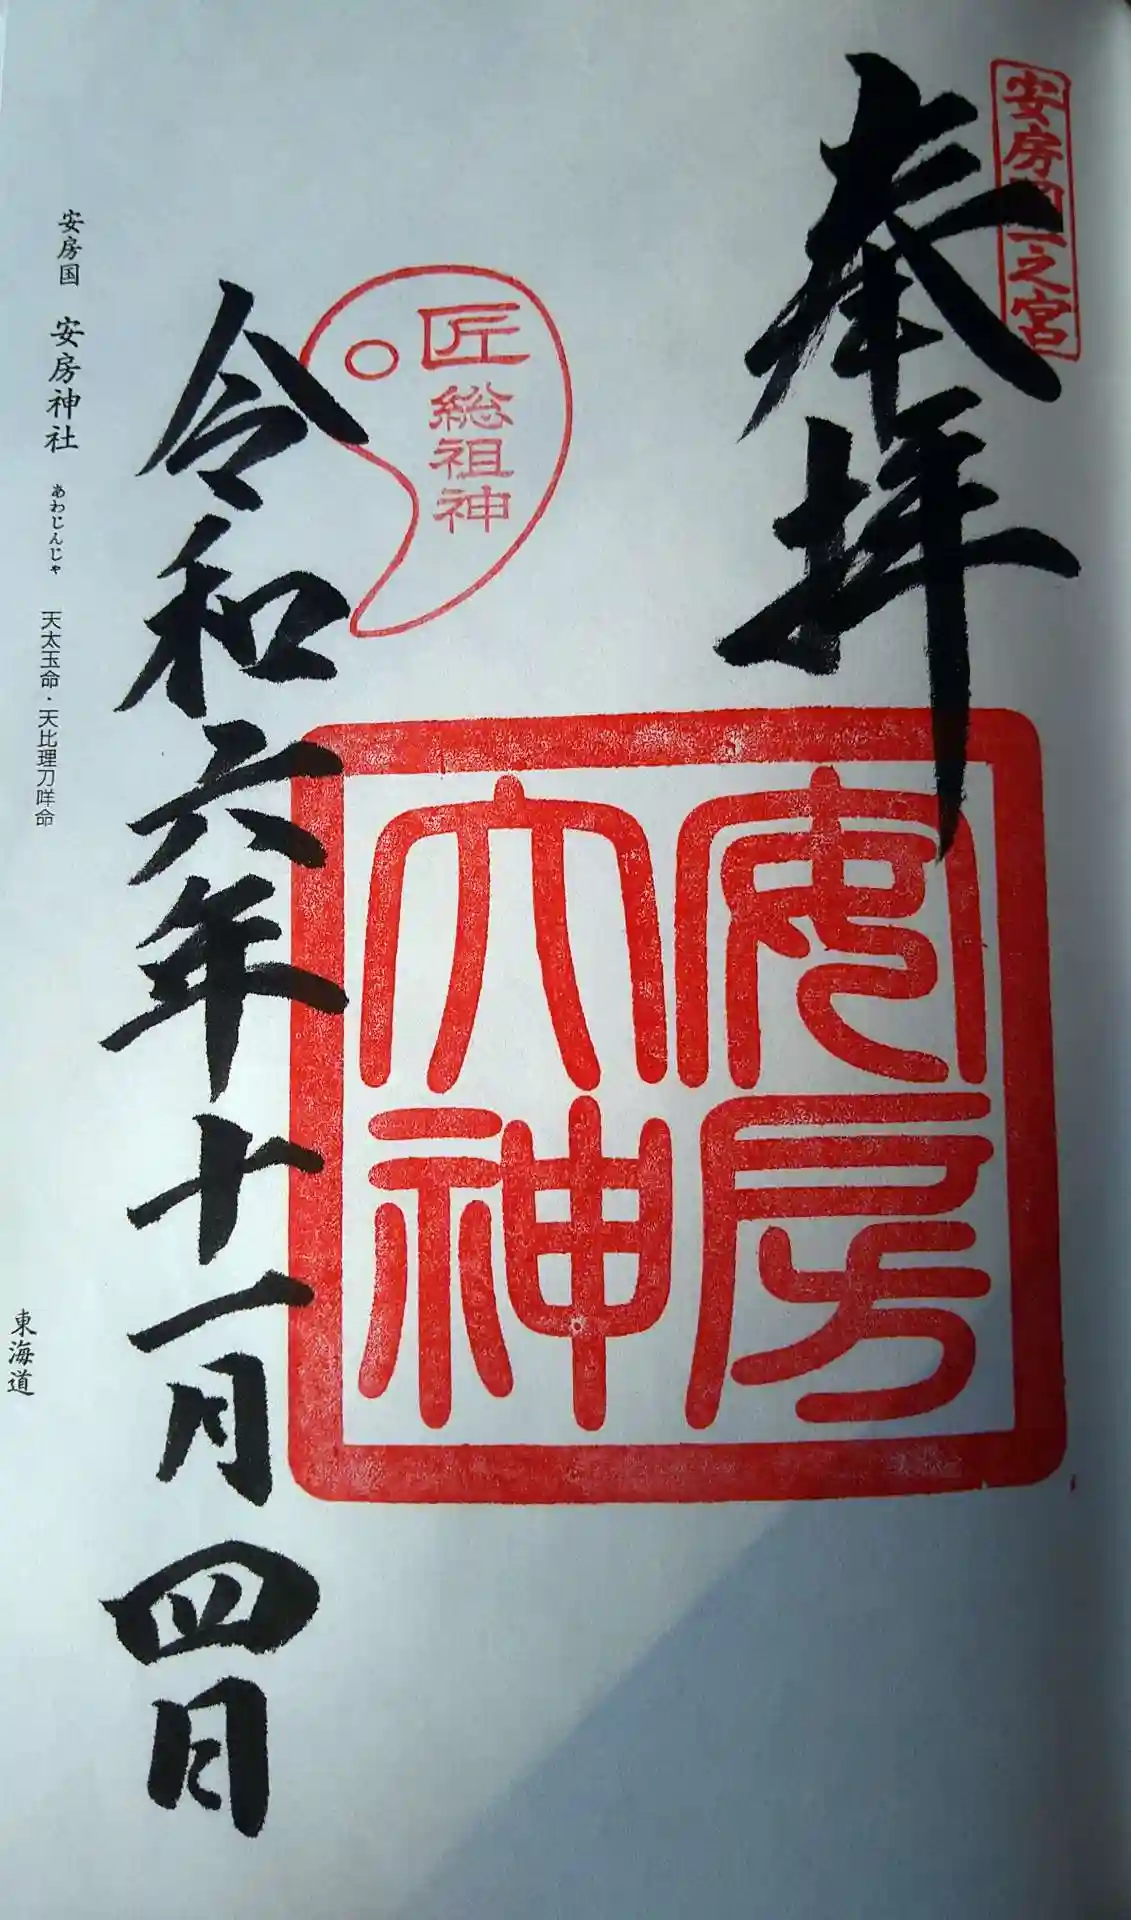 安房国一之宮
奉拝
安房
大神
匠
総祖神
令和六年十一月四日
安房国 安房神社 あわじんじゃ 天太玉命・天比理刀咩命
東海道